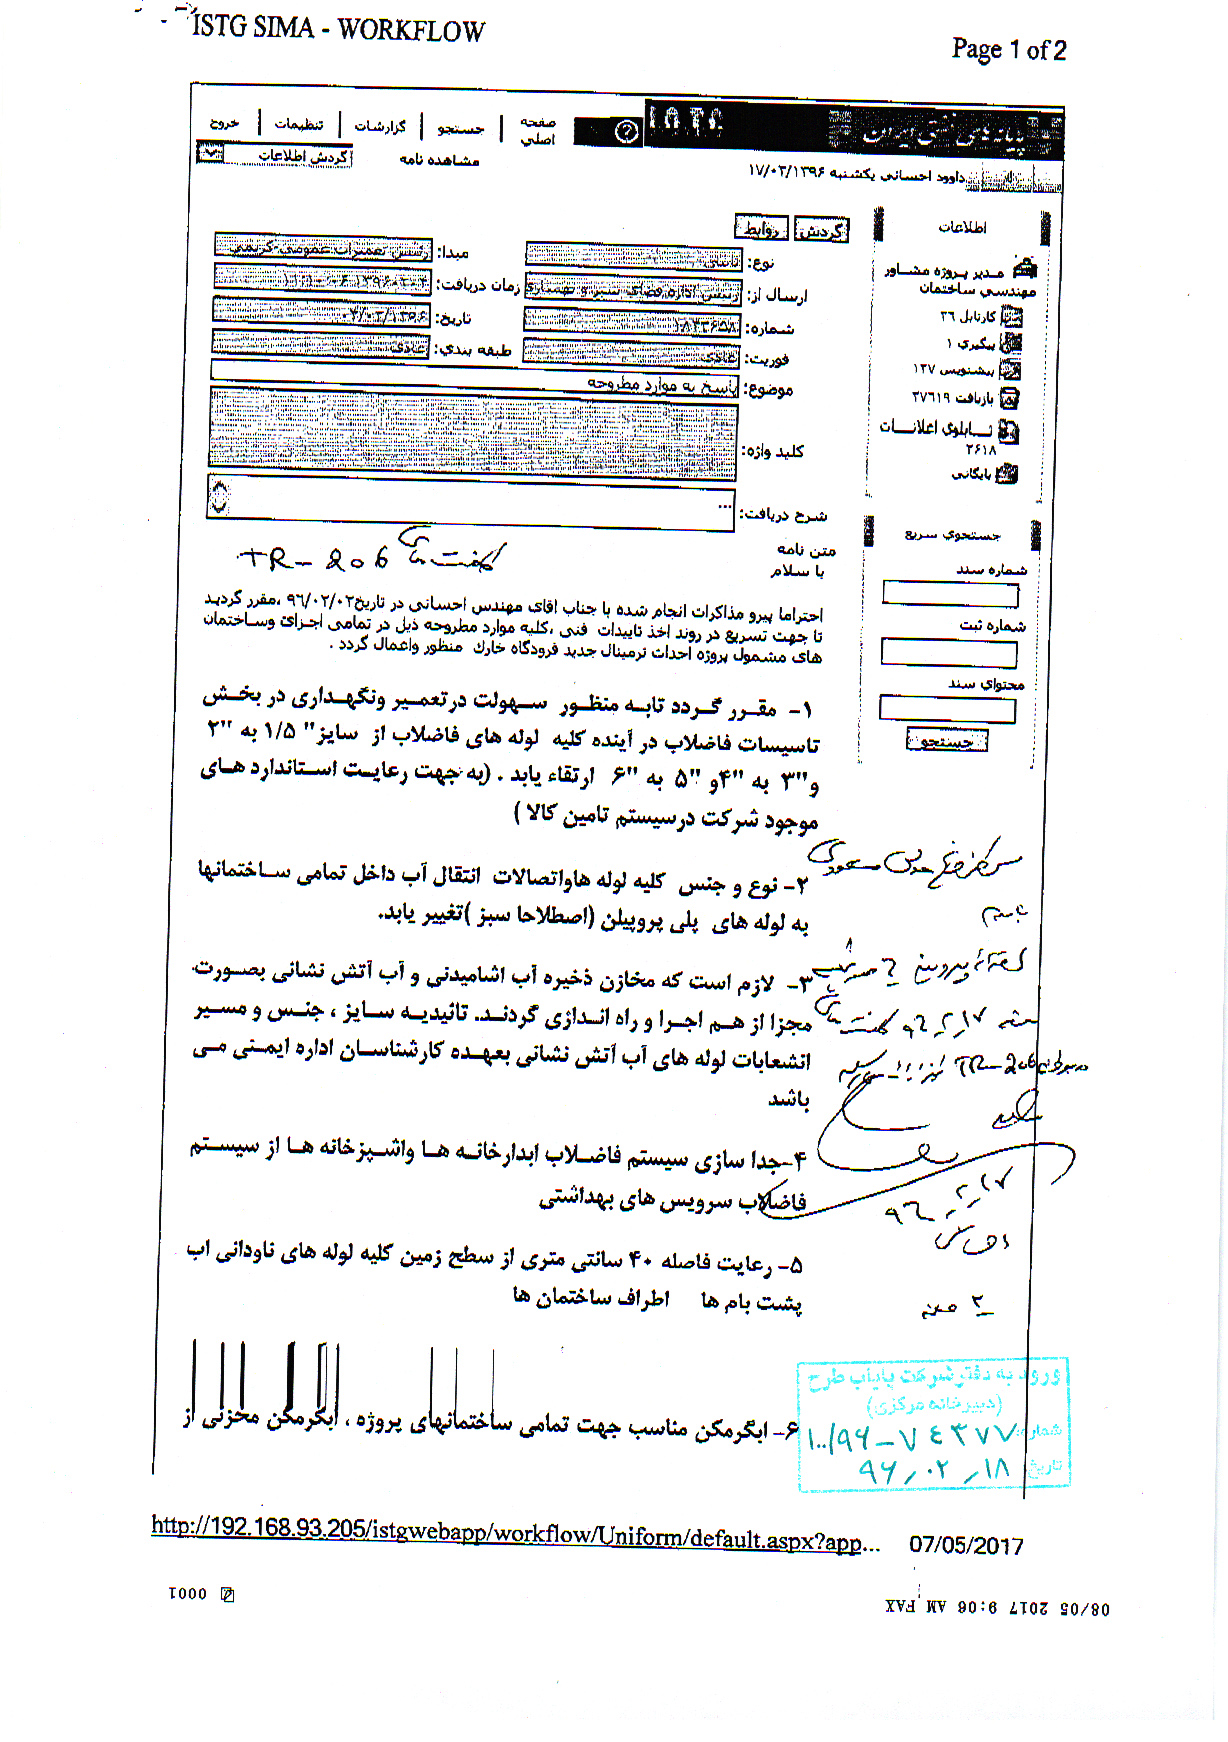 ISTG SIMA - WORKFLOW
Page 1 of 2
پایانه های نفتی ایران
صفحه اصلی | جستجو | گزارشات | تنظیمات | خروج
مشاهده نامه
گردش اطلاعات
داوود احسانی یکشنبه ۱۷/۰۲/۱۳۹۶
اطلاعات
مدیر پروژه مشاور
مهندسی ساختمان
کارتابل ۲۶
پیگیری ۱
پیشنویس ۱۲۷
بازیافت ۲۷۶۱۹
تــابلوی اعلانــات
۲۶۱۸
بایگانی
جستجوی سریع
شماره سند
شماره ثبت
محتوای سند
جستجو
گردش روابط
نوع:
مبدا: رئیس تعمیرات عمومی-کریمی
ارسال از: رییس اداره فضای سبز و بهسازی
زمان دریافت:
شماره: ۱۸۲۳۶۵۸
تاریخ: ۰۴/۰۲/۱۳۹۶
فوریت: عادی
طبقه بندی: عادی
موضوع: پاسخ به موارد مطروحه
کلید واژه:
شرح دریافت: ...
متن نامه
با سلام
TR-206
احتراما پیرو مذاکرات انجام شده با جناب اقای مهندس احسانی در تاریخ۹۶/۰۲/۰۲ ،مقرر گردید
تا جهت تسریع در روند اخذ تاییدات فنی ،کلیه موارد مطروحه ذیل در تمامی اجزای وساختمان
های مشمول پروژه احداث ترمینال جدید فرودگاه خارك منظور واعمال گردد .
۱- مقرر گردد تابه منظور سهولت درتعمیر ونگهداری در بخش
تاسیسات فاضلاب در آینده کلیه لوله های فاضلاب از سایز" ۱/۵ به "۲
و"۳ به "۴و "۵ به "۶ ارتقاء یابد . (به جهت رعایت استاندارد های
موجود شرکت درسیستم تامین کالا )
۲- نوع و جنس کلیه لوله هاواتصالات انتقال آب داخل تمامی ساختمانها
به لوله های پلی پروپیلن (اصطلاحا سبز )تغییر یابد.
۳- لازم است که مخازن ذخیره آب اشامیدنی و آب آتش نشانی بصورت
مجزا از هم اجرا و راه اندازی گردند. تائیدیه سایز ، جنس و مسیر
انشعابات لوله های آب آتش نشانی بعهده کارشناسان اداره ایمنی می
باشد
۴-جدا سازی سیستم فاضلاب ابدارخانه ها واشپزخانه ها از سیستم
فاضلاب سرویس های بهداشتی
۵- رعایت فاصله ۴۰ سانتی متری از سطح زمین کلیه لوله های ناودانی اب
پشت بام ها اطراف ساختمان ها
۶- ابگرمکن مناسب جهت تمامی ساختمانهای پروژه ، ابگرمکن مخزنی از
TR-206
۹۶-۲-۱۷
ورود به دفتر شرکت پایاب طرح
(دبیرخانه مرکزی)
شماره: ۱۰۰/۹۶-۷۴۳۷۷
تاریخ: ۹۶/۰۲/۱۸
http://192.168.93.205/istgwebapp/workflow/Uniform/default.aspx?app...
07/05/2017
08/05 2017 9:06 AM FAX
0001